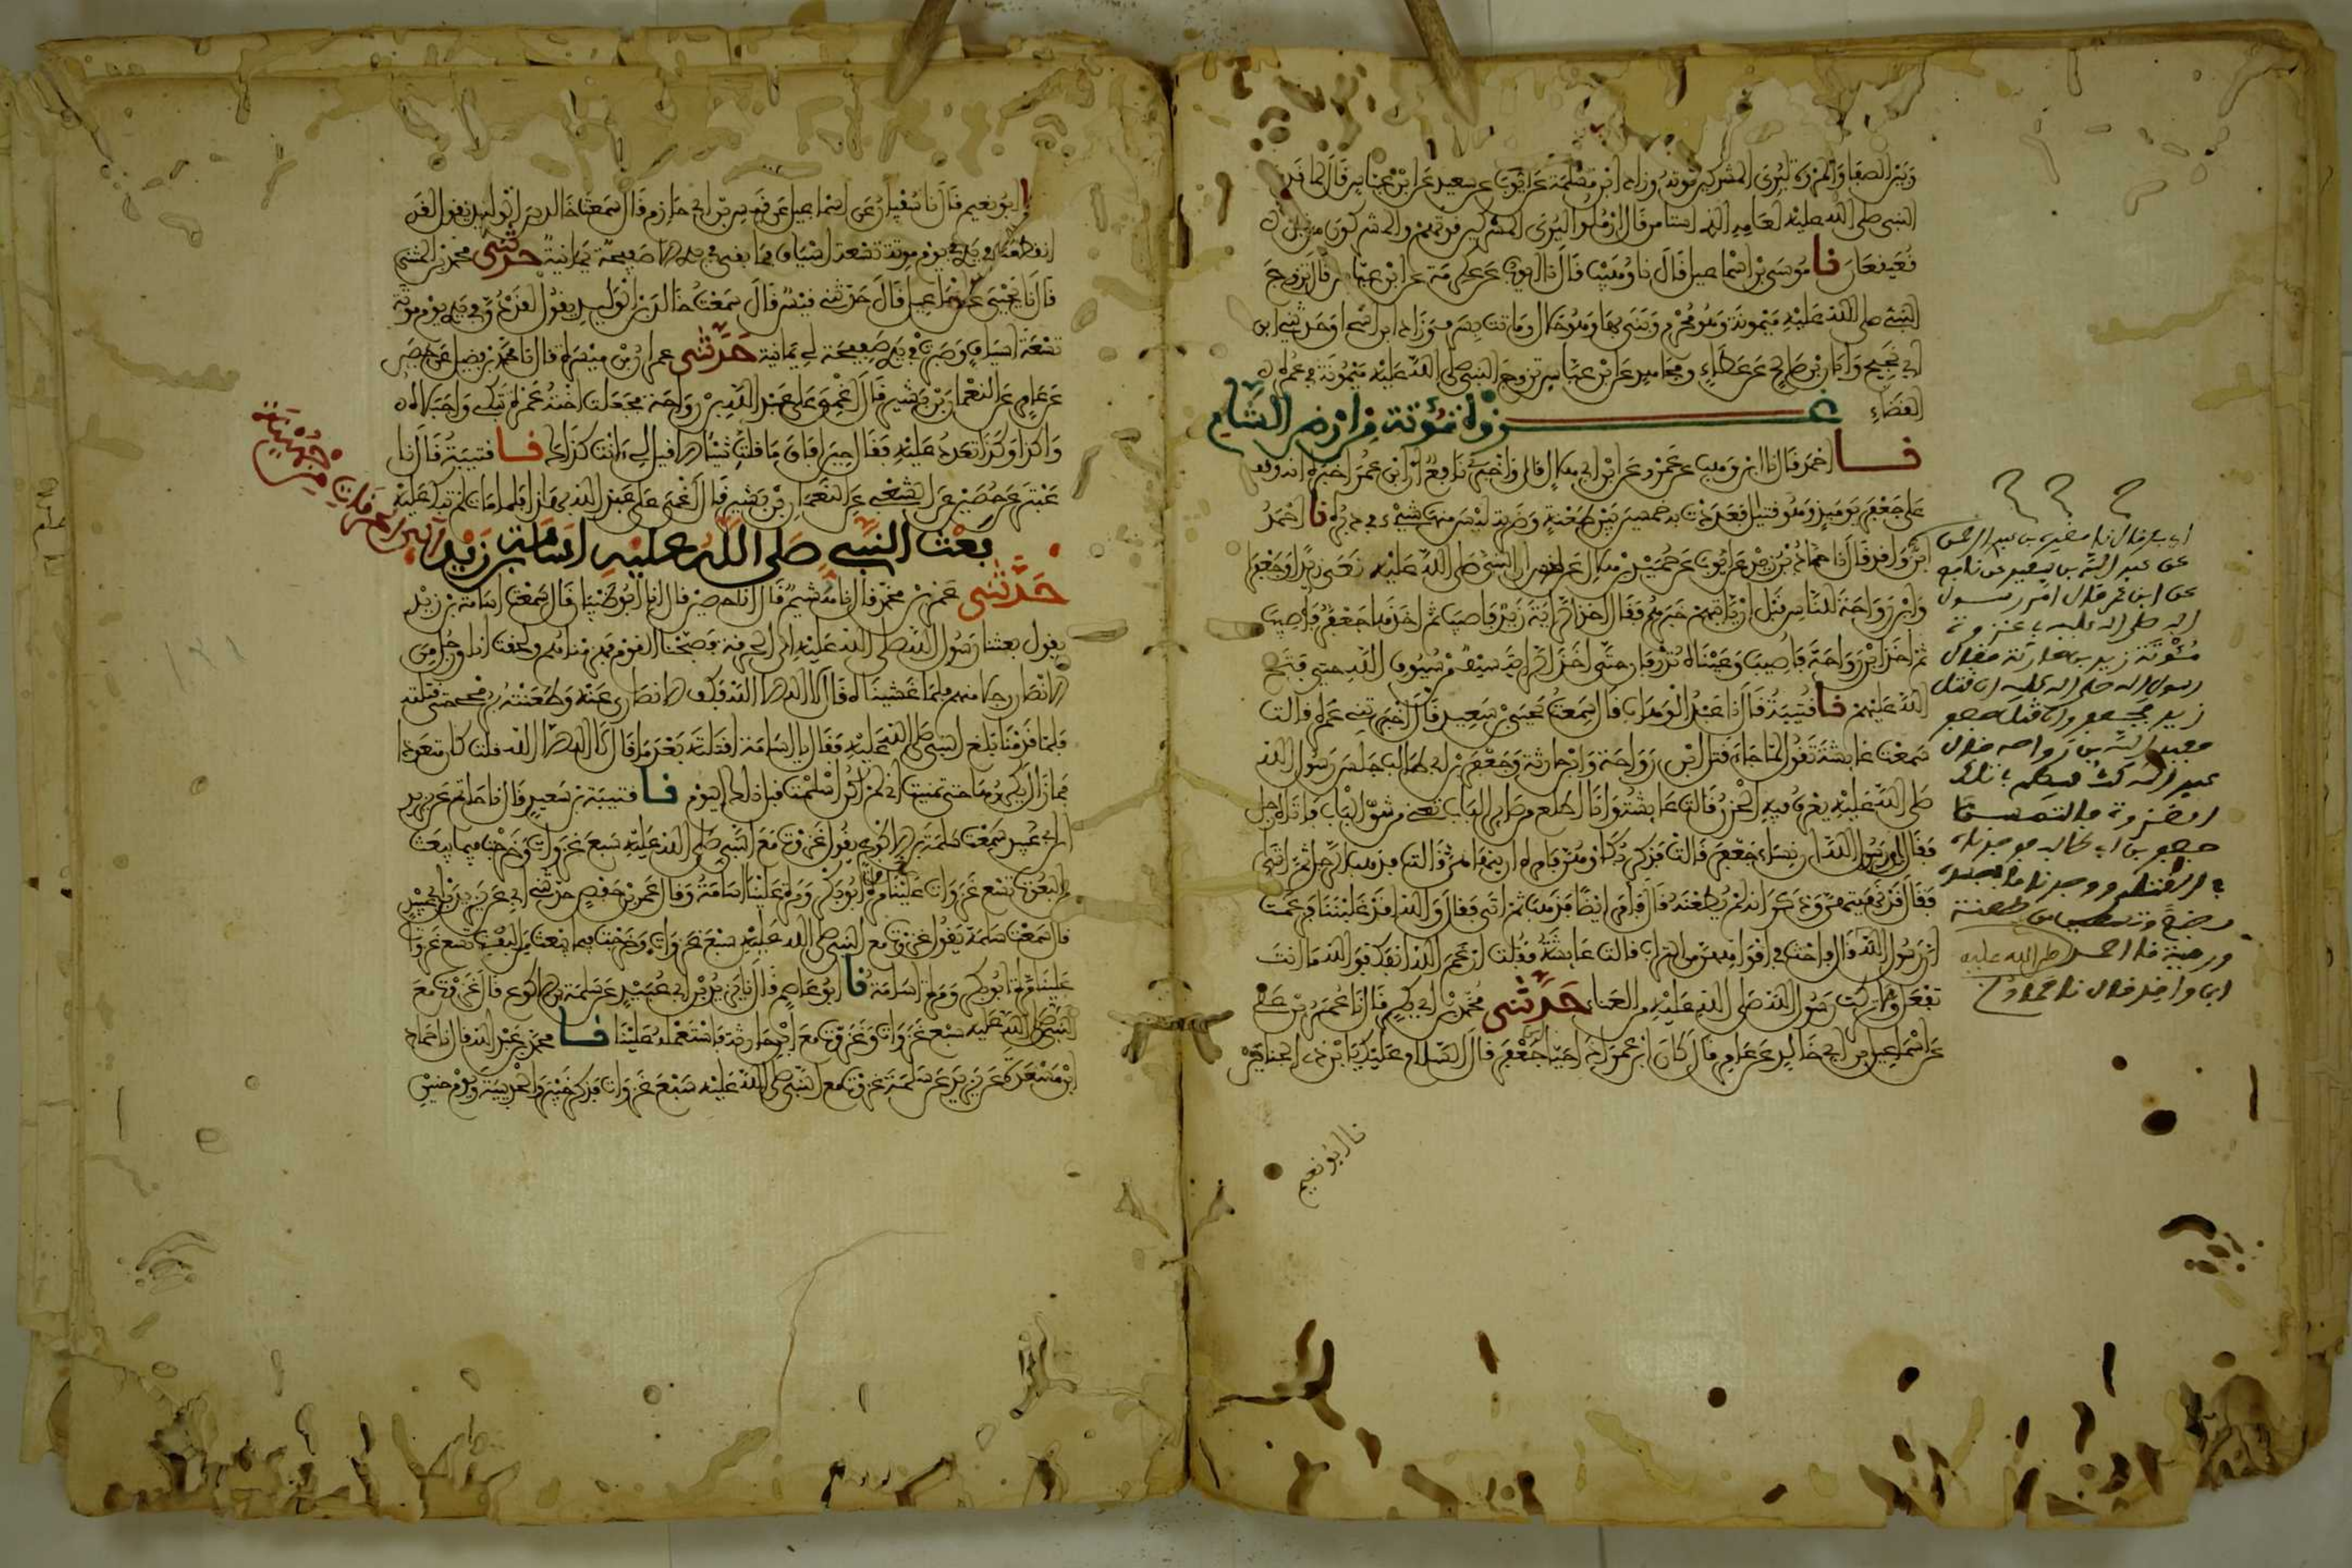 وبين الصفا والمروة ليرى المشركين قوته وزاد ابن سلمة عن ايوب عن سعيد عن ابن عباس قال لما قدم
النبي صلى الله عليه لعامه الذي استامن قال ارملوا ليرى المشركين قوتهم والمشركون من قبل
قعيقعان نا موسى بن اسماعيل قال نا وهيب قال نا ايوب عن عكرمة عن ابن عباس قال تزوج
النبي صلى الله عليه ميمونة وهو محرم وبنى بها وهو حلال وماتت بسرف وزاد ابن اسحاق وحدثني ابن
ابي نجيح وابان بن صالح عن عطاء ومجاهد عن ابن عباس تزوج النبي صلى الله عليه ميمونة في عمرة
القضاء
غزوة مؤتة من ارض الشام
نا احمد قال نا ابن وهب عن عمرو عن ابن ابي هلال قال واخبرني نافع ان ابن عمر اخبره انه وقف
على جعفر يومئذ وهو قتيل فعددت به خمسين بين طعنة وضربة ليس منها شيء في دبره نا احمد
ابن واقد قال نا حماد بن زيد عن ايوب عن حميد بن هلال عن انس ان النبي صلى الله عليه نعى زيدا وجعفرا
وابن رواحة للناس قبل ان ياتيهم خبرهم فقال اخذ الراية زيد فاصيب ثم اخذها جعفر فاصيب
ثم اخذ ابن رواحة فاصيب وعيناه تذرفان حتى اخذ الراية سيف من سيوف الله حتى فتح
الله عليهم نا قتيبة قال نا عبد الوهاب قال سمعت يحيى بن سعيد قال اخبرتني عمرة قالت
سمعت عايشة تقول لما جاء قتل ابن رواحة وابن حارثة وجعفر بن ابي طالب جلس رسول الله
صلى الله عليه يعرف فيه الحزن قالت عايشة وانا اطلع من صاير الباب تعني من شق الباب فاتاه رجل
فقال اي رسول الله ان نساء جعفر قالت فذكر بكاءهن فامره ان ينهاهن قالت فذهب الرجل ثم اتى
فقال قد نهيتهن وذكر انه لم يطعنه قال فامر ايضا فذهب ثم اتى فقال والله لقد غلبننا فزعمت
ان رسول الله قال فاحث في افواههن من التراب قالت عايشة فقلت ارغم الله انفك فوالله ما انت
تفعل وما تركت رسول الله صلى الله عليه من العناء حدثني محمد بن ابي بكر قال نا عمر بن علي
عن اسماعيل بن ابي خالد عن عامر قال كان ابن عمر اذا حيا ابن جعفر قال السلام عليك يا ابن ذي الجناحين
نا ابو نعيم
ابي بكر قال نا مغيرة بن عبد الرحمن
عن عبد الله بن سعيد عن نافع
عن ابن عمر قال امر رسول
الله صلى الله عليه في غزوة
مؤتة زيد بن حارثة فقال
رسول الله صلى الله عليه ان قتل
زيد فجعفر وان قتل جعفر
فعبد الله بن رواحة قال
عبد الله كنت فيهم في تلك
الغزوة فالتمسنا
جعفر بن ابي طالب فوجدناه
في القتلى ووجدنا ما في جسده
بضعا وتسعين من طعنة
ورمية نا احمد
ابن واقد قال نا حماد
نا ابو نعيم قال نا سفيان عن اسماعيل عن قيس بن ابي حازم قال سمعت خالد بن الوليد يقول لقد
انقطعت في يدي يوم مؤتة تسعة اسياف فما بقي في يدي الا صفيحة يمانية حدثني محمد بن المثنى
قال نا يحيى عن اسماعيل قال حدثني قيس قال سمعت خالد بن الوليد يقول لقد دق في يدي يوم مؤتة
تسعة اسياف وصبرت في يدي صفيحة لي يمانية حدثني عمران بن ميسرة قال نا محمد بن فضيل عن حصين
عن عامر عن النعمان بن بشير قال اغمي على عبد الله بن رواحة فجعلت اخته عمرة تبكي واجبلاه
واكذا وكذا تعدد عليه فقال حين افاق ما قلت شيئا الا قيل لي اانت كذلك نا قتيبة قال نا
عبثر عن حصين عن الشعبي عن النعمان بن بشير قال اغمي على عبد الله بهذا فلما مات لم تبك عليه
بعث النبي صلى الله عليه اسامة بن زيد الى الحرقات من جهينة
حدثني عمرو بن محمد قال نا هشيم قال انا حصين قال انا ابو ظبيان قال سمعت اسامة بن زيد
يقول بعثنا رسول الله صلى الله عليه الى الحرقة فصبحنا القوم فهزمناهم ولحقت انا ورجل من
الانصار رجلا منهم فلما غشيناه قال لا اله الا الله فكف الانصاري عنه وطعنته برمحي حتى قتلته
فلما قدمنا بلغ النبي صلى الله عليه فقال يا اسامة اقتلته بعد ما قال لا اله الا الله قلت كان متعوذا
فما زال يكررها حتى تمنيت اني لم اكن اسلمت قبل ذلك اليوم نا قتيبة بن سعيد قال نا حاتم عن يزيد
ابن ابي عبيد سمعت سلمة بن الاكوع يقول غزوت مع النبي صلى الله عليه سبع غزوات وخرجت فيما يبعث
من البعوث تسع غزوات علينا مرة ابو بكر ومرة علينا اسامة وقال عمر بن حفص حدثني ابي عن يزيد بن ابي عبيد
قال سمعت سلمة يقول غزوت مع النبي صلى الله عليه سبع غزوات وخرجت فيما يبعث من البعث تسع غزوات
علينا مرة ابو بكر ومرة اسامة نا ابو عاصم قال نا يزيد بن ابي عبيد عن سلمة بن الاكوع قال غزوت مع
النبي صلى الله عليه سبع غزوات وغزوت مع ابن حارثة فاستعمله علينا نا محمد بن عبد الله قال نا حماد
ابن مسعدة عن يزيد عن سلمة غزوت مع النبي صلى الله عليه سبع غزوات فذكر خيبر والحديبية ويوم حنين